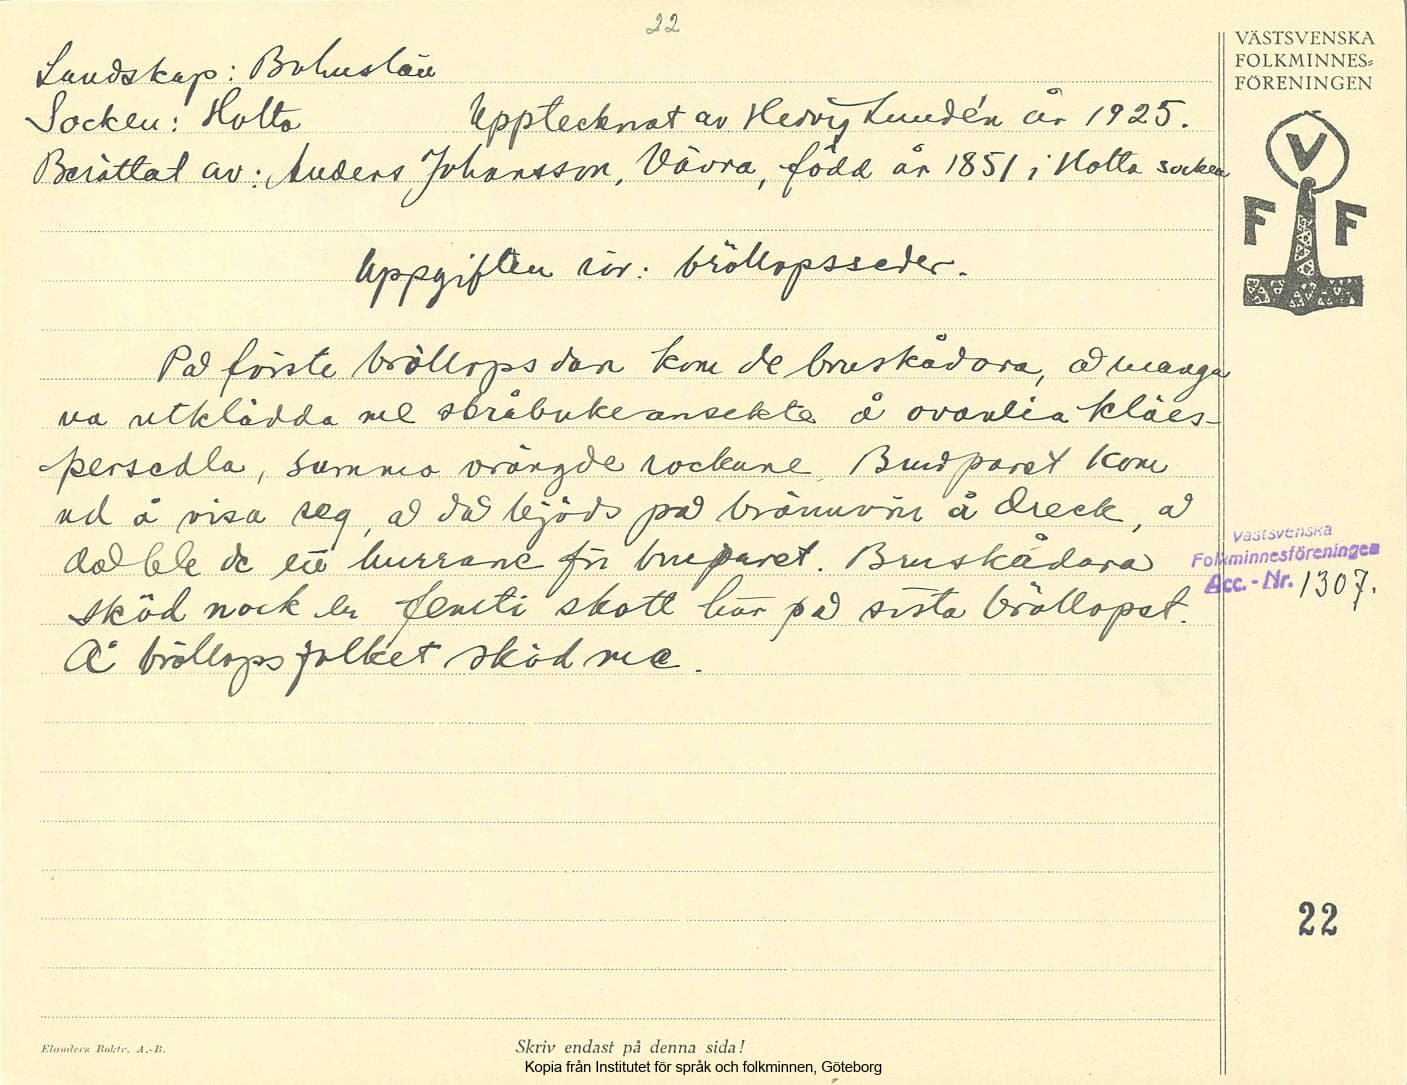 22
Landskap: Bohuslän
Socken: Holta
Upptecknat av Hedvig Lundén år 1925.
Berättat av: Anders Johansson, Vävra, född år 1851 i Holta socken
Uppgiften rör: bröllopsseder.
På förste bröllopsdan kom de bruskådara, å manga
va utklädda me skråbukeansekte å ovanlia kläes-
persedla, summa vrängde rockane. Brudparet kom
ud å visa seg, å då bjöds på brännvin å dreck, å
då ble de ett hurrane för bruparet. Bruskådara
sköd nock en femti skott här på sista bröllopet.
Å bröllopsfolket sköd me.
VÄSTSVENSKA
FOLKMINNES=
FÖRENINGEN
V
F F
Västsvenska
Folkminnesföreningen
Acc.-Nr. 1307.
22
Elanders Boktr. A.-B.
Skriv endast på denna sida!
Kopia från Institutet för språk och folkminnen, Göteborg